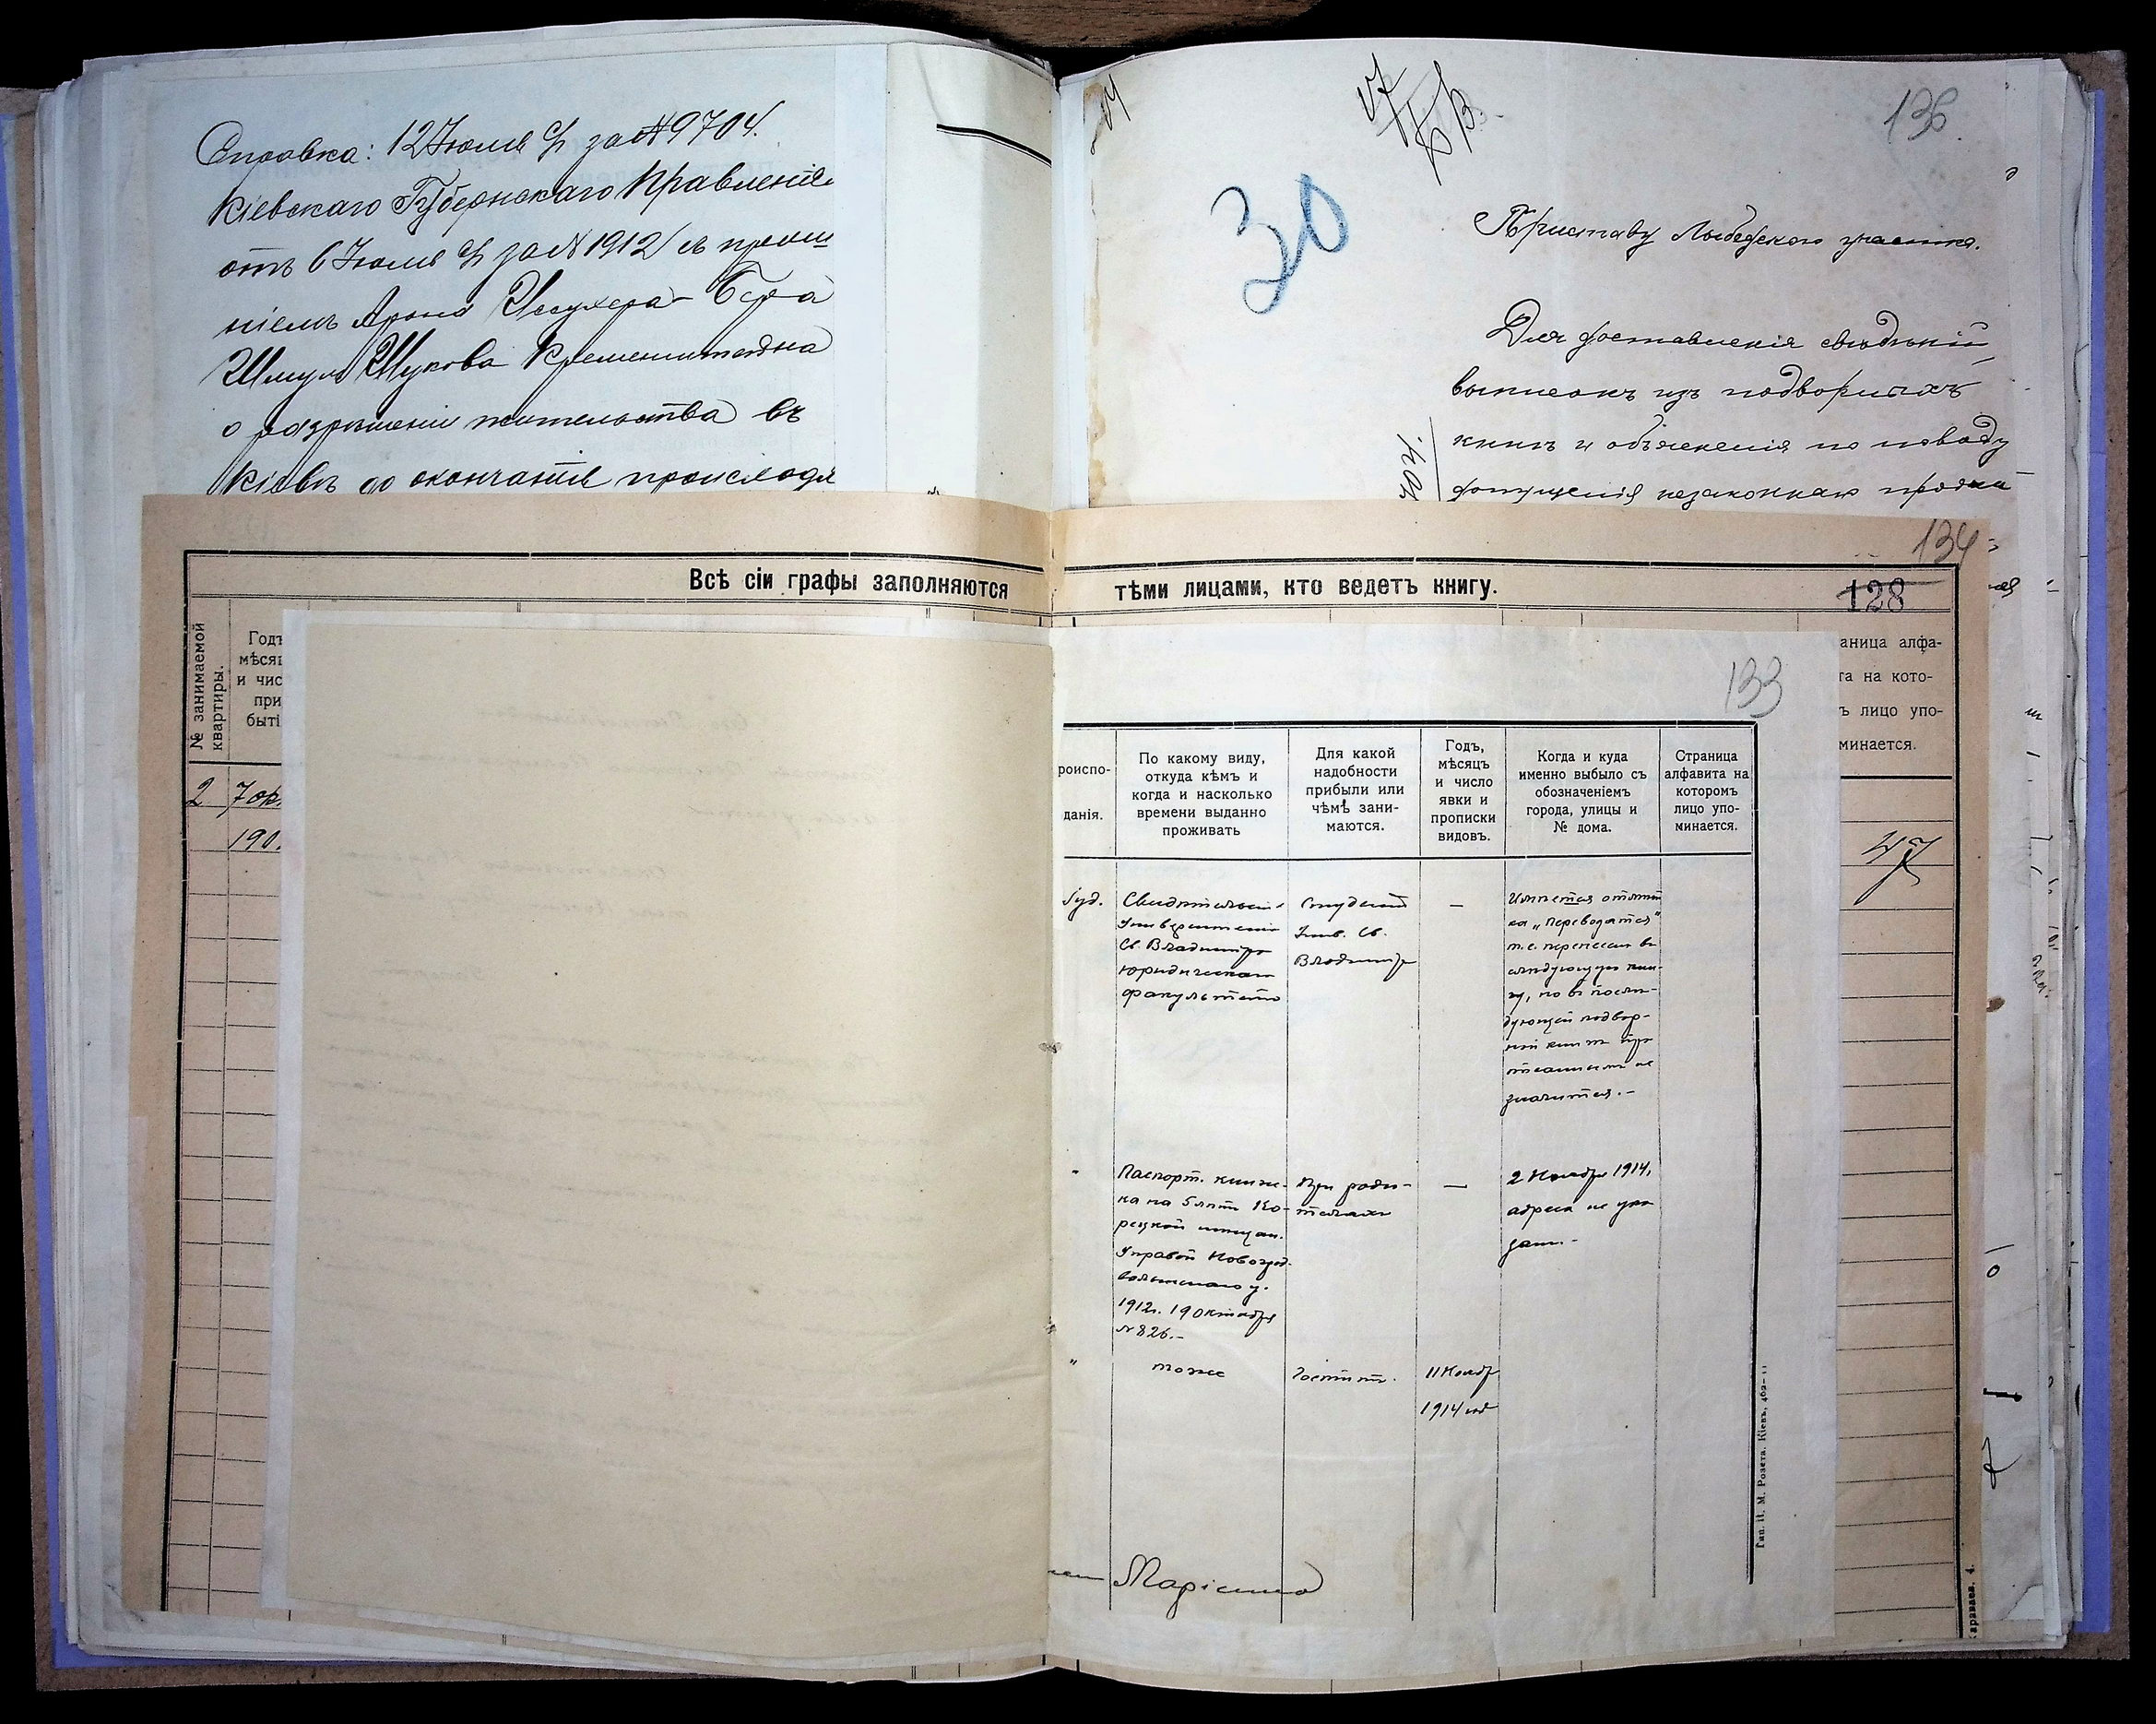 Справка: 12 Июля за № 9704.
Кіевскаго Губернскаго Правленія
отъ 6 Июля за № 1912/ съ прош
ніемъ Арона Иссухера-Бера
Шмуля Шукова Кременштейна
о разрѣшеніи жительства въ
Кіевѣ до окончанія происходя
136
30
Приставу Лыбедского участка.
Для доставленія свѣдѣній
выписокъ изъ подворныхъ
книгъ и объясненія по поводу
допущенія незаконнаго
134
Всѣ сіи графы заполняются тѣми лицами, кто ведетъ книгу.
128
№ занимаемой
квартиры.
Годъ
мѣсяц
и чис
при
быті
аница алфа-
та на кото-
ъ лицо упо-
минается.
2 7 ок
190
47
133
роиспо-
данія.
По какому виду,
откуда кѣмъ и
когда и насколько
времени выданно
проживать
Для какой
надобности
прибыли или
чѣмъ зани-
маются.
Годъ,
мѣсяцъ
и число
явки и
прописки
видовъ.
Когда и куда
именно выбыло съ
обозначеніемъ
города, улицы и
№ дома.
Страница
алфавита на
которомъ
лицо упо-
минается.
іуд.
Свидѣтельст.
Университета
Св. Владиміра
юридическаго
факультета
Студентъ
Унив. Св.
Владимір
—
Имѣется отмѣт
ка „переводятся"
т.е. перенесен въ
слѣдующую кни-
гу, но въ послѣ-
дующей подвор-
ной книгѣ про
писаннымъ не
значится.-
"
Паспорт. книж-
ка на 5 лѣтъ Ко-
рецкой мѣщан.
Управой Новоград
волынскаго у.
1912г. 19 октября
№ 826.-
При роди-
теляхъ
—
2 Ноября 1914,
адреса не ука
зан.-
"
тоже
11 Ноябр
1914 год
Гип. И. М. Розета. Кіевъ,